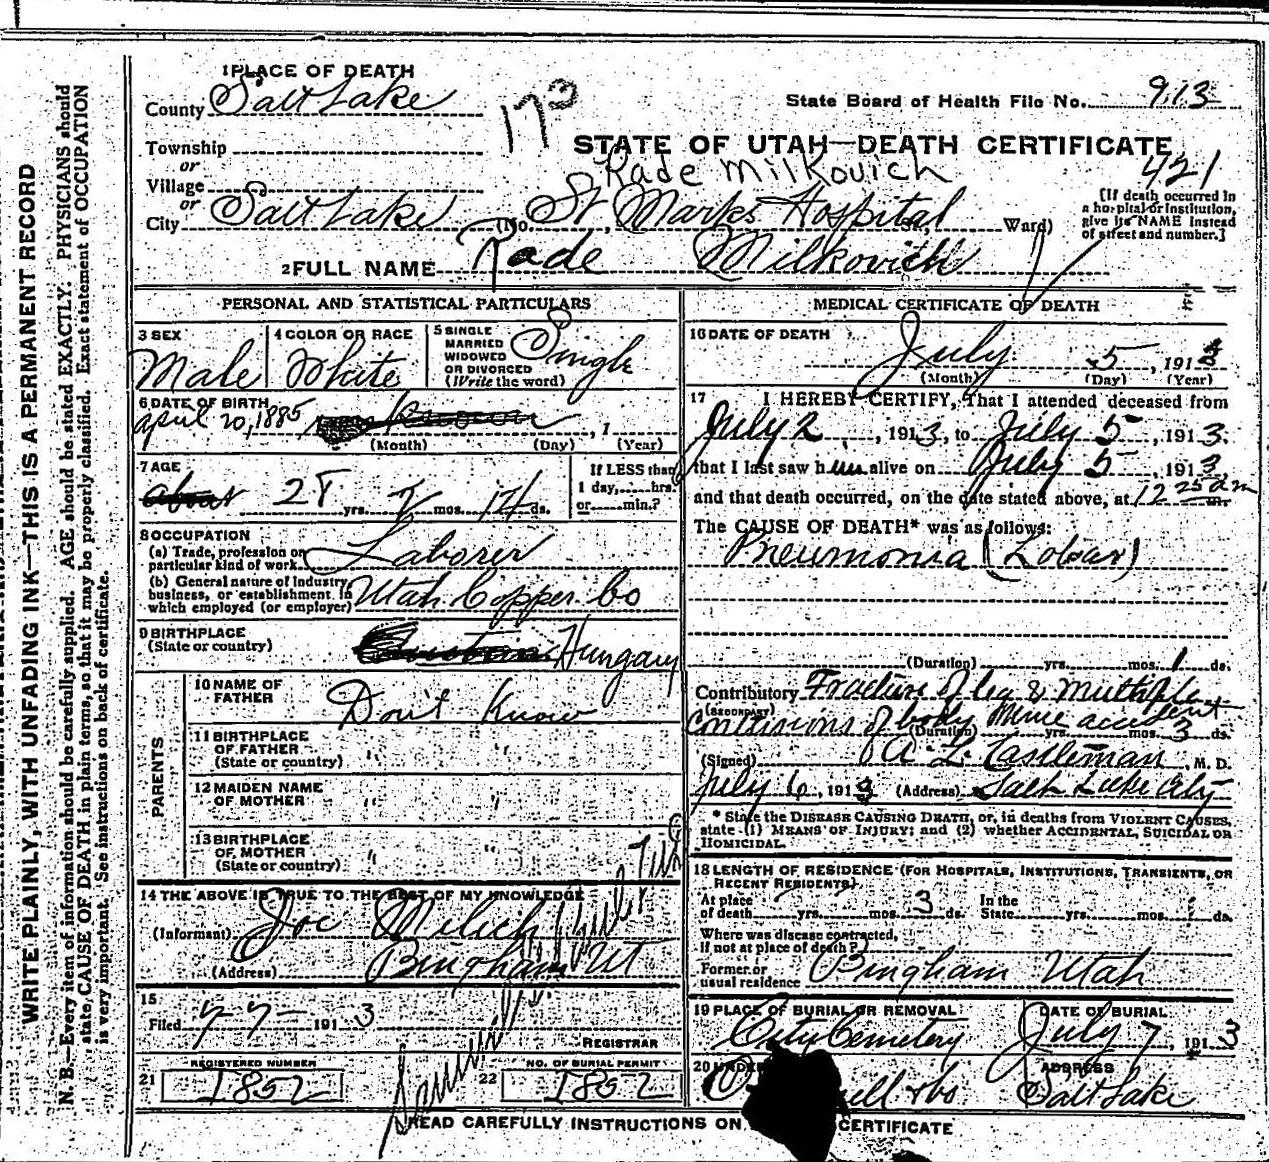 WRITE PLAINLY, WITH UNFADING INK—THIS IS A PERMANENT RECORD
N. B.—Every item of information should be carefully supplied. AGE should be stated EXACTLY. PHYSICIANS should
state CAUSE OF DEATH in plain terms, so that it may be properly classified. Exact statement of OCCUPATION
is very important. See instructions on back of certificate.
1 PLACE OF DEATH
County Salt Lake
173
State Board of Health File No. 913
Township
or
Village
or
STATE OF UTAH—DEATH CERTIFICATE
Rade Milkovich
421
City Salt Lake (No. St Marks Hospital St., Ward)
[If death occurred in
a hospital or institution,
give its NAME instead
of street and number.]
2 FULL NAME Rade Milkovich
PERSONAL AND STATISTICAL PARTICULARS
3 SEX
Male
4 COLOR OR RACE
White
5 SINGLE
MARRIED
WIDOWED
OR DIVORCED
(Write the word)
Single
6 DATE OF BIRTH
April 20, 1885 , 1
(Month) (Day) (Year)
7 AGE
about 28 yrs. 2 mos. 14 ds.
If LESS than
1 day, hrs.
or min.?
8 OCCUPATION
(a) Trade, profession or
particular kind of work Laborer
(b) General nature of industry,
business, or establishment in
which employed (or employer) Utah Copper Co
9 BIRTHPLACE
(State or country) Austria Hungary
PARENTS
10 NAME OF
FATHER Don't Know
11 BIRTHPLACE
OF FATHER
(State or country) " "
12 MAIDEN NAME
OF MOTHER " "
13 BIRTHPLACE
OF MOTHER
(State or country) " "
14 THE ABOVE IS TRUE TO THE BEST OF MY KNOWLEDGE
(Informant) Joe Milich
(Address) Bingham Ut
15
Filed 7 7 - 1913
REGISTRAR
REGISTERED NUMBER
21 1852
NO. OF BURIAL PERMIT
22 1852
MEDICAL CERTIFICATE OF DEATH
16 DATE OF DEATH
July 5, 1913
(Month) (Day) (Year)
17 I HEREBY CERTIFY, That I attended deceased from
July 2, 1913, to July 5, 1913,
that I last saw him alive on July 5, 1913,
and that death occurred, on the date stated above, at 12 25 am m.
The CAUSE OF DEATH* was as follows:
Pneumonia (Lobar)
(Duration) yrs. mos. 1 ds.
Contributory Fracture of leg & Multiple
(SECONDARY)
contusions of body Mine accident
(Duration) yrs. mos. 3 ds.
(Signed) A. L. Castleman, M. D.
July 6, 1913 (Address) Salt Lake City
* State the DISEASE CAUSING DEATH, or, in deaths from VIOLENT CAUSES,
state (1) MEANS OF INJURY; and (2) whether ACCIDENTAL, SUICIDAL OR
HOMICIDAL.
18 LENGTH OF RESIDENCE (FOR HOSPITALS, INSTITUTIONS, TRANSIENTS, OR
RECENT RESIDENTS).
At place
of death yrs. mos. 3 ds.
In the
State yrs. mos. ds.
Where was disease contracted,
if not at place of death?
Former or
usual residence Bingham Utah
19 PLACE OF BURIAL OR REMOVAL
City Cemetery
DATE OF BURIAL
July 7, 1913
20
ADDRESS
Salt Lake
READ CAREFULLY INSTRUCTIONS ON CERTIFICATE